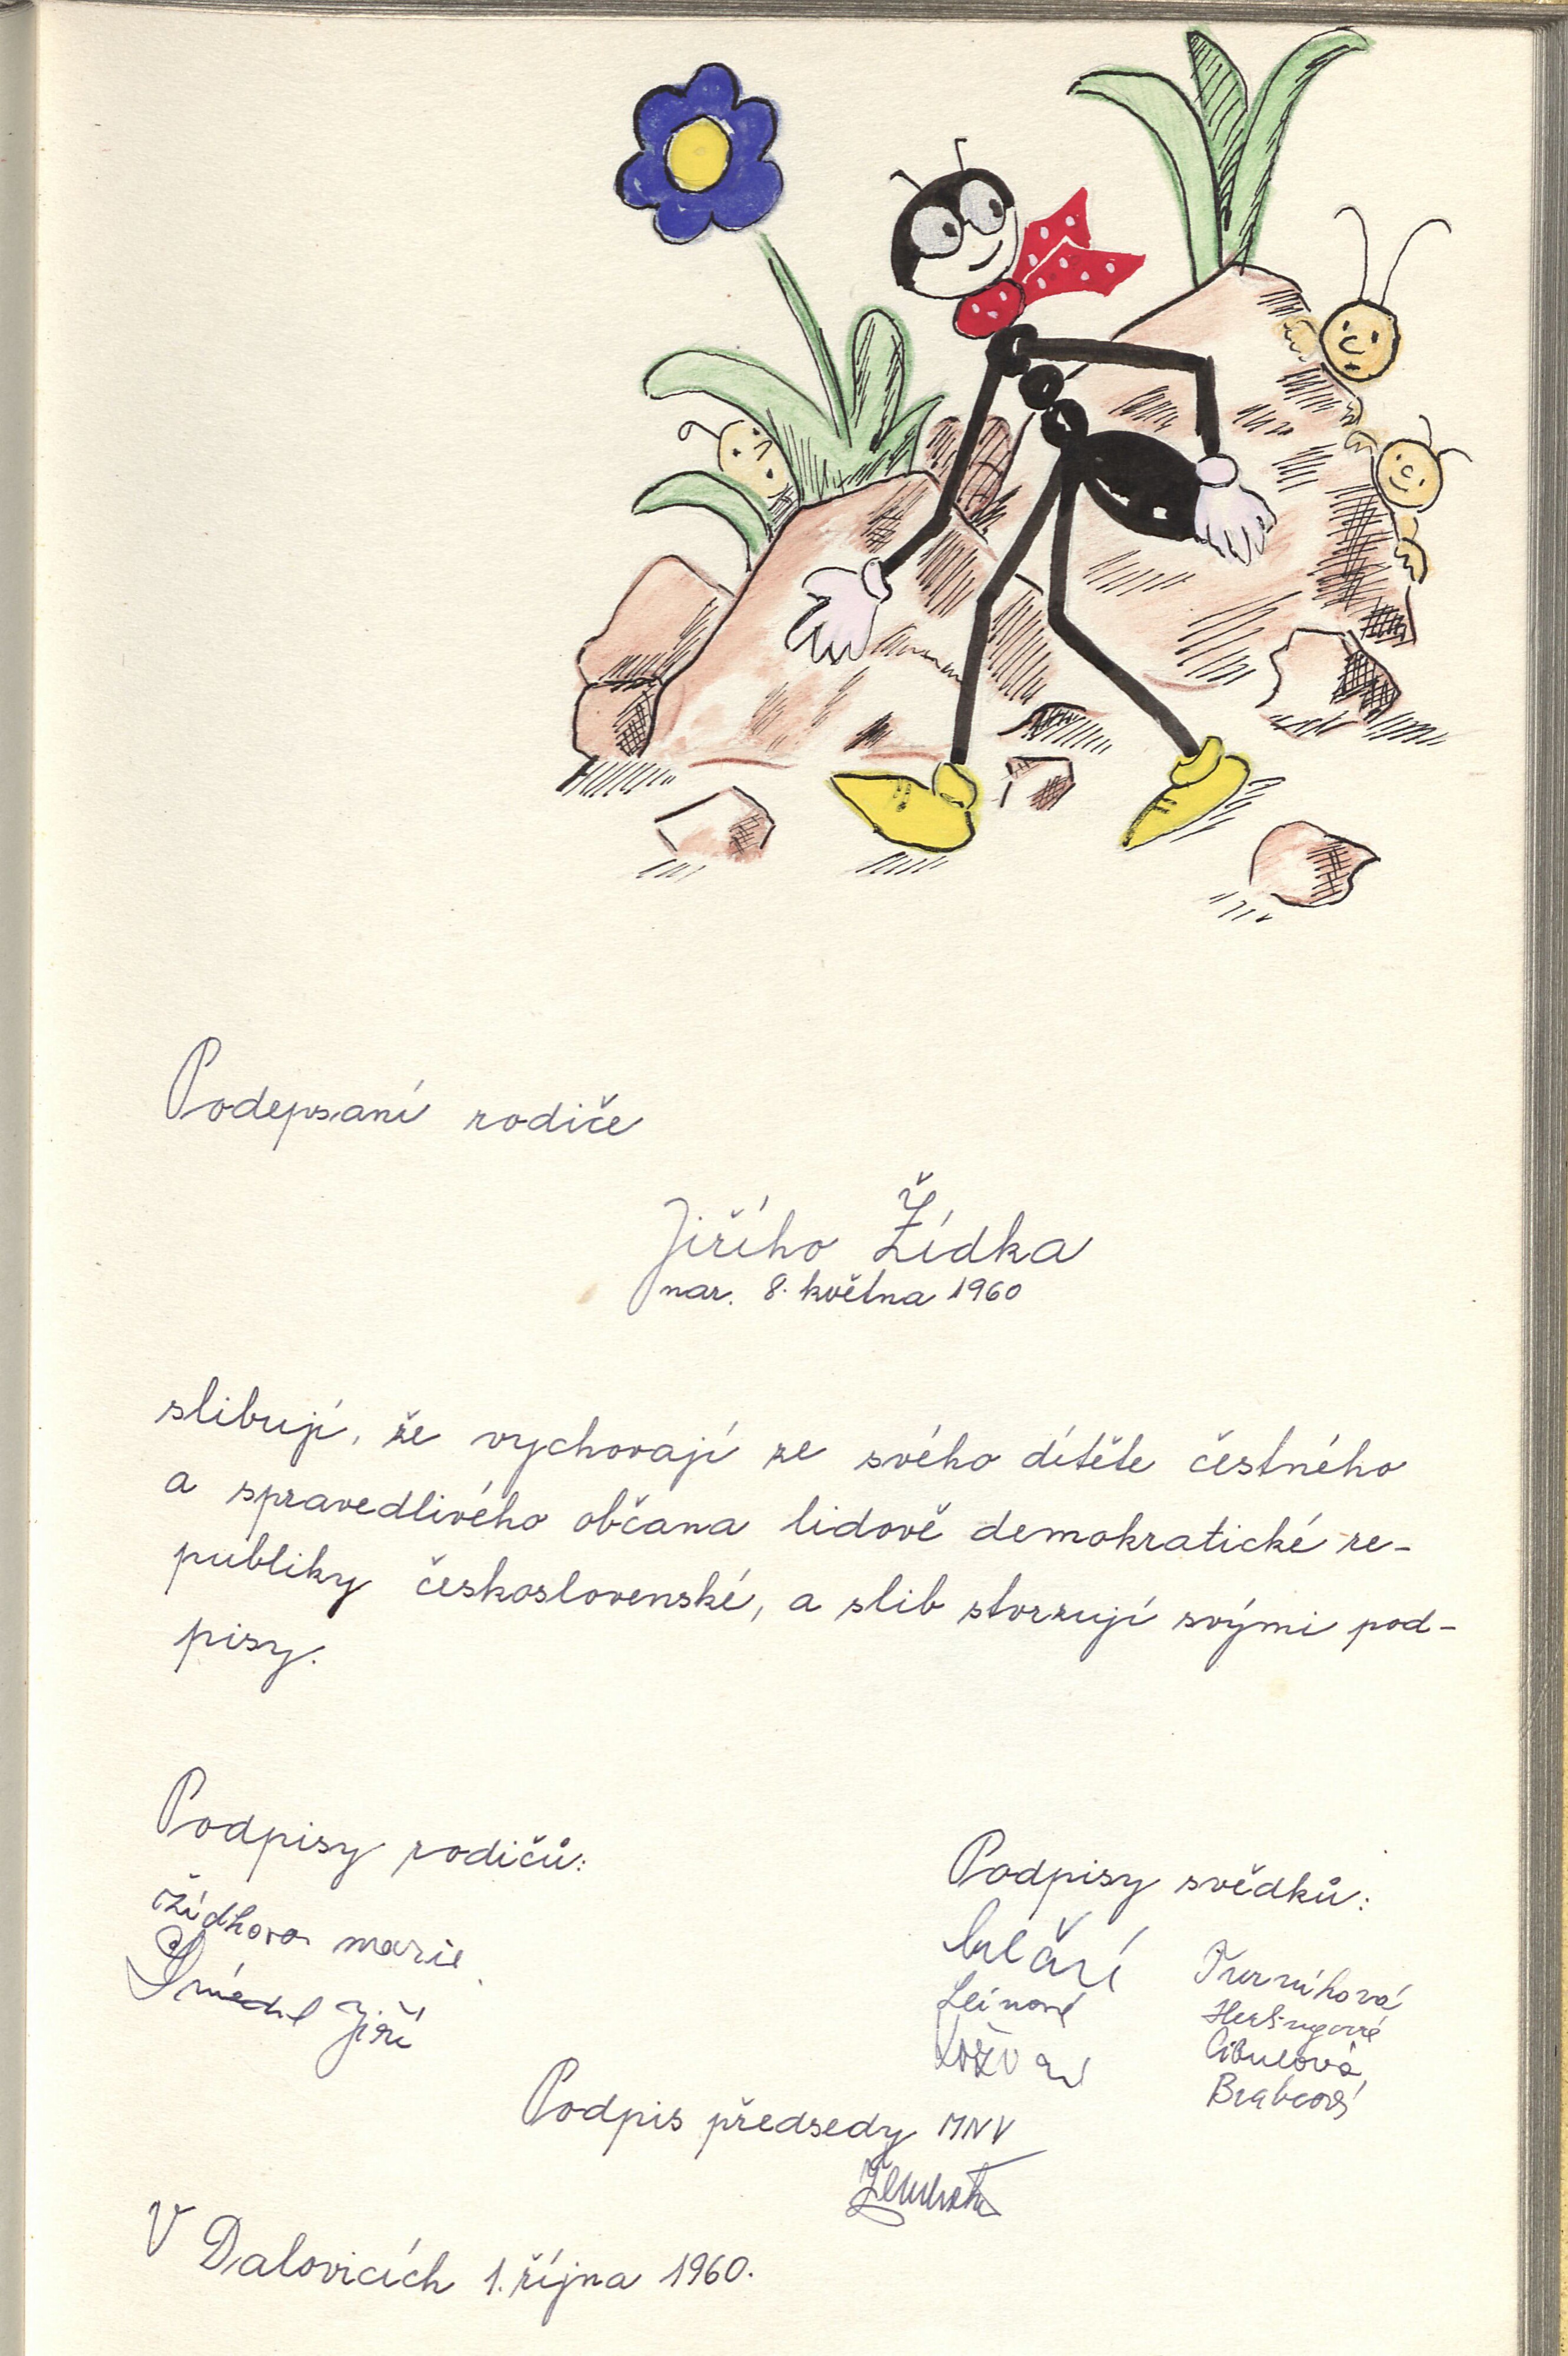 Podepsaní rodiče
Jiřího Žídka
nar. 8. května 1960
slibují, že vychovají ze svého dítěte čestného
a spravedlivého občana lidově demokratické re-
publiky československé, a slib stvrzují svými pod-
pisy.
Podpisy rodičů:
Židkova marie
Jiří
Podpisy svědků:
Cibulová
Brabcová
Podpis předsedy MNV
V Dalovicích 1. října 1960.